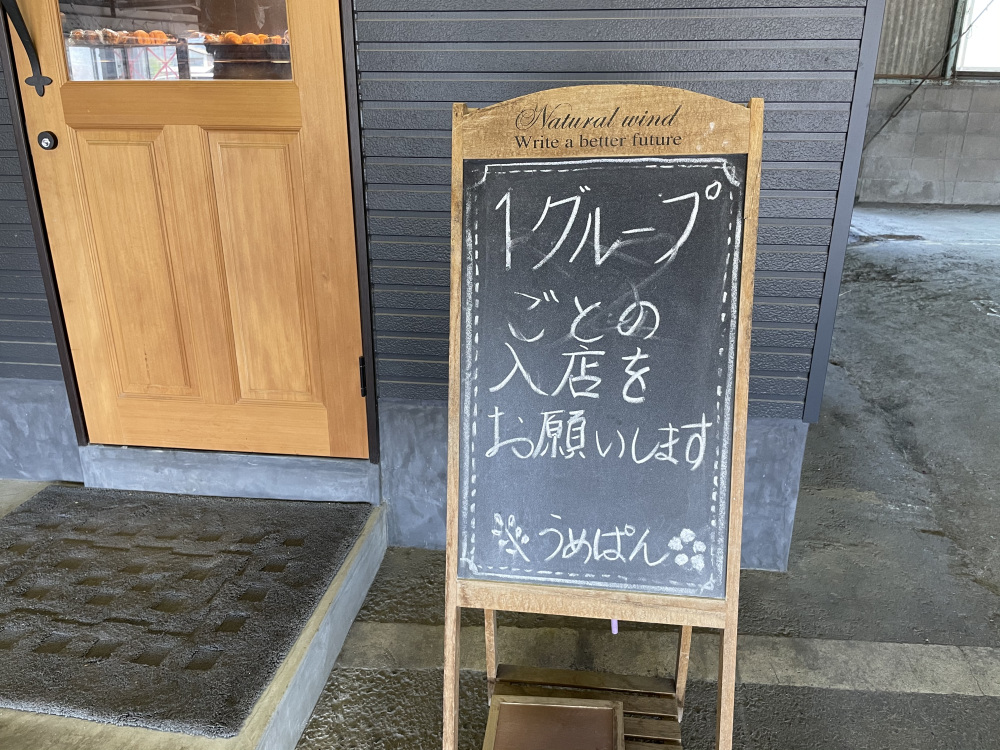 Natural wind
Write a better future
1グループ
ごとの
入店を
お願いします
うめぱん